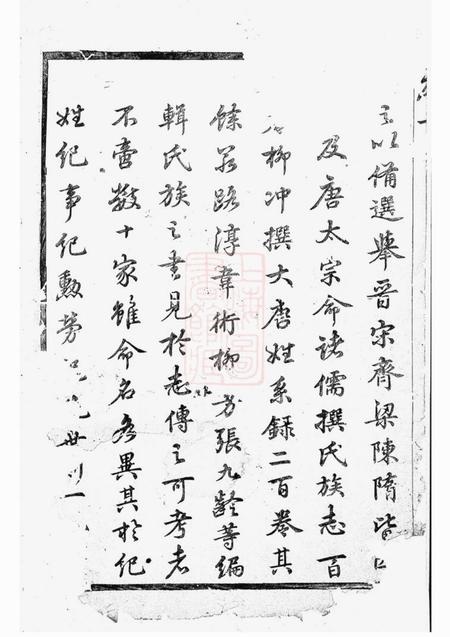 以備選舉晉宋齊梁陳隋皆
及唐太宗命諸儒撰氏族志百
柳冲撰大唐姓系錄二百卷其
餘若路淳韋術柳芳張九齡等編
輯氏族之書見於志傳之可考者
不啻數十家雖命名各異其於紀
姓紀事紀勲勞